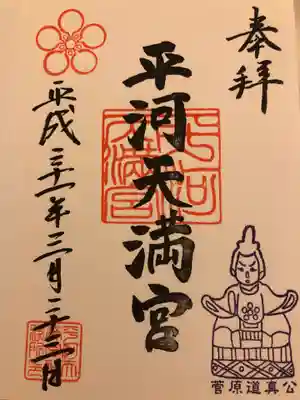 奉拝
平河天満宮
平成三十一年三月二十三日
菅原道真公